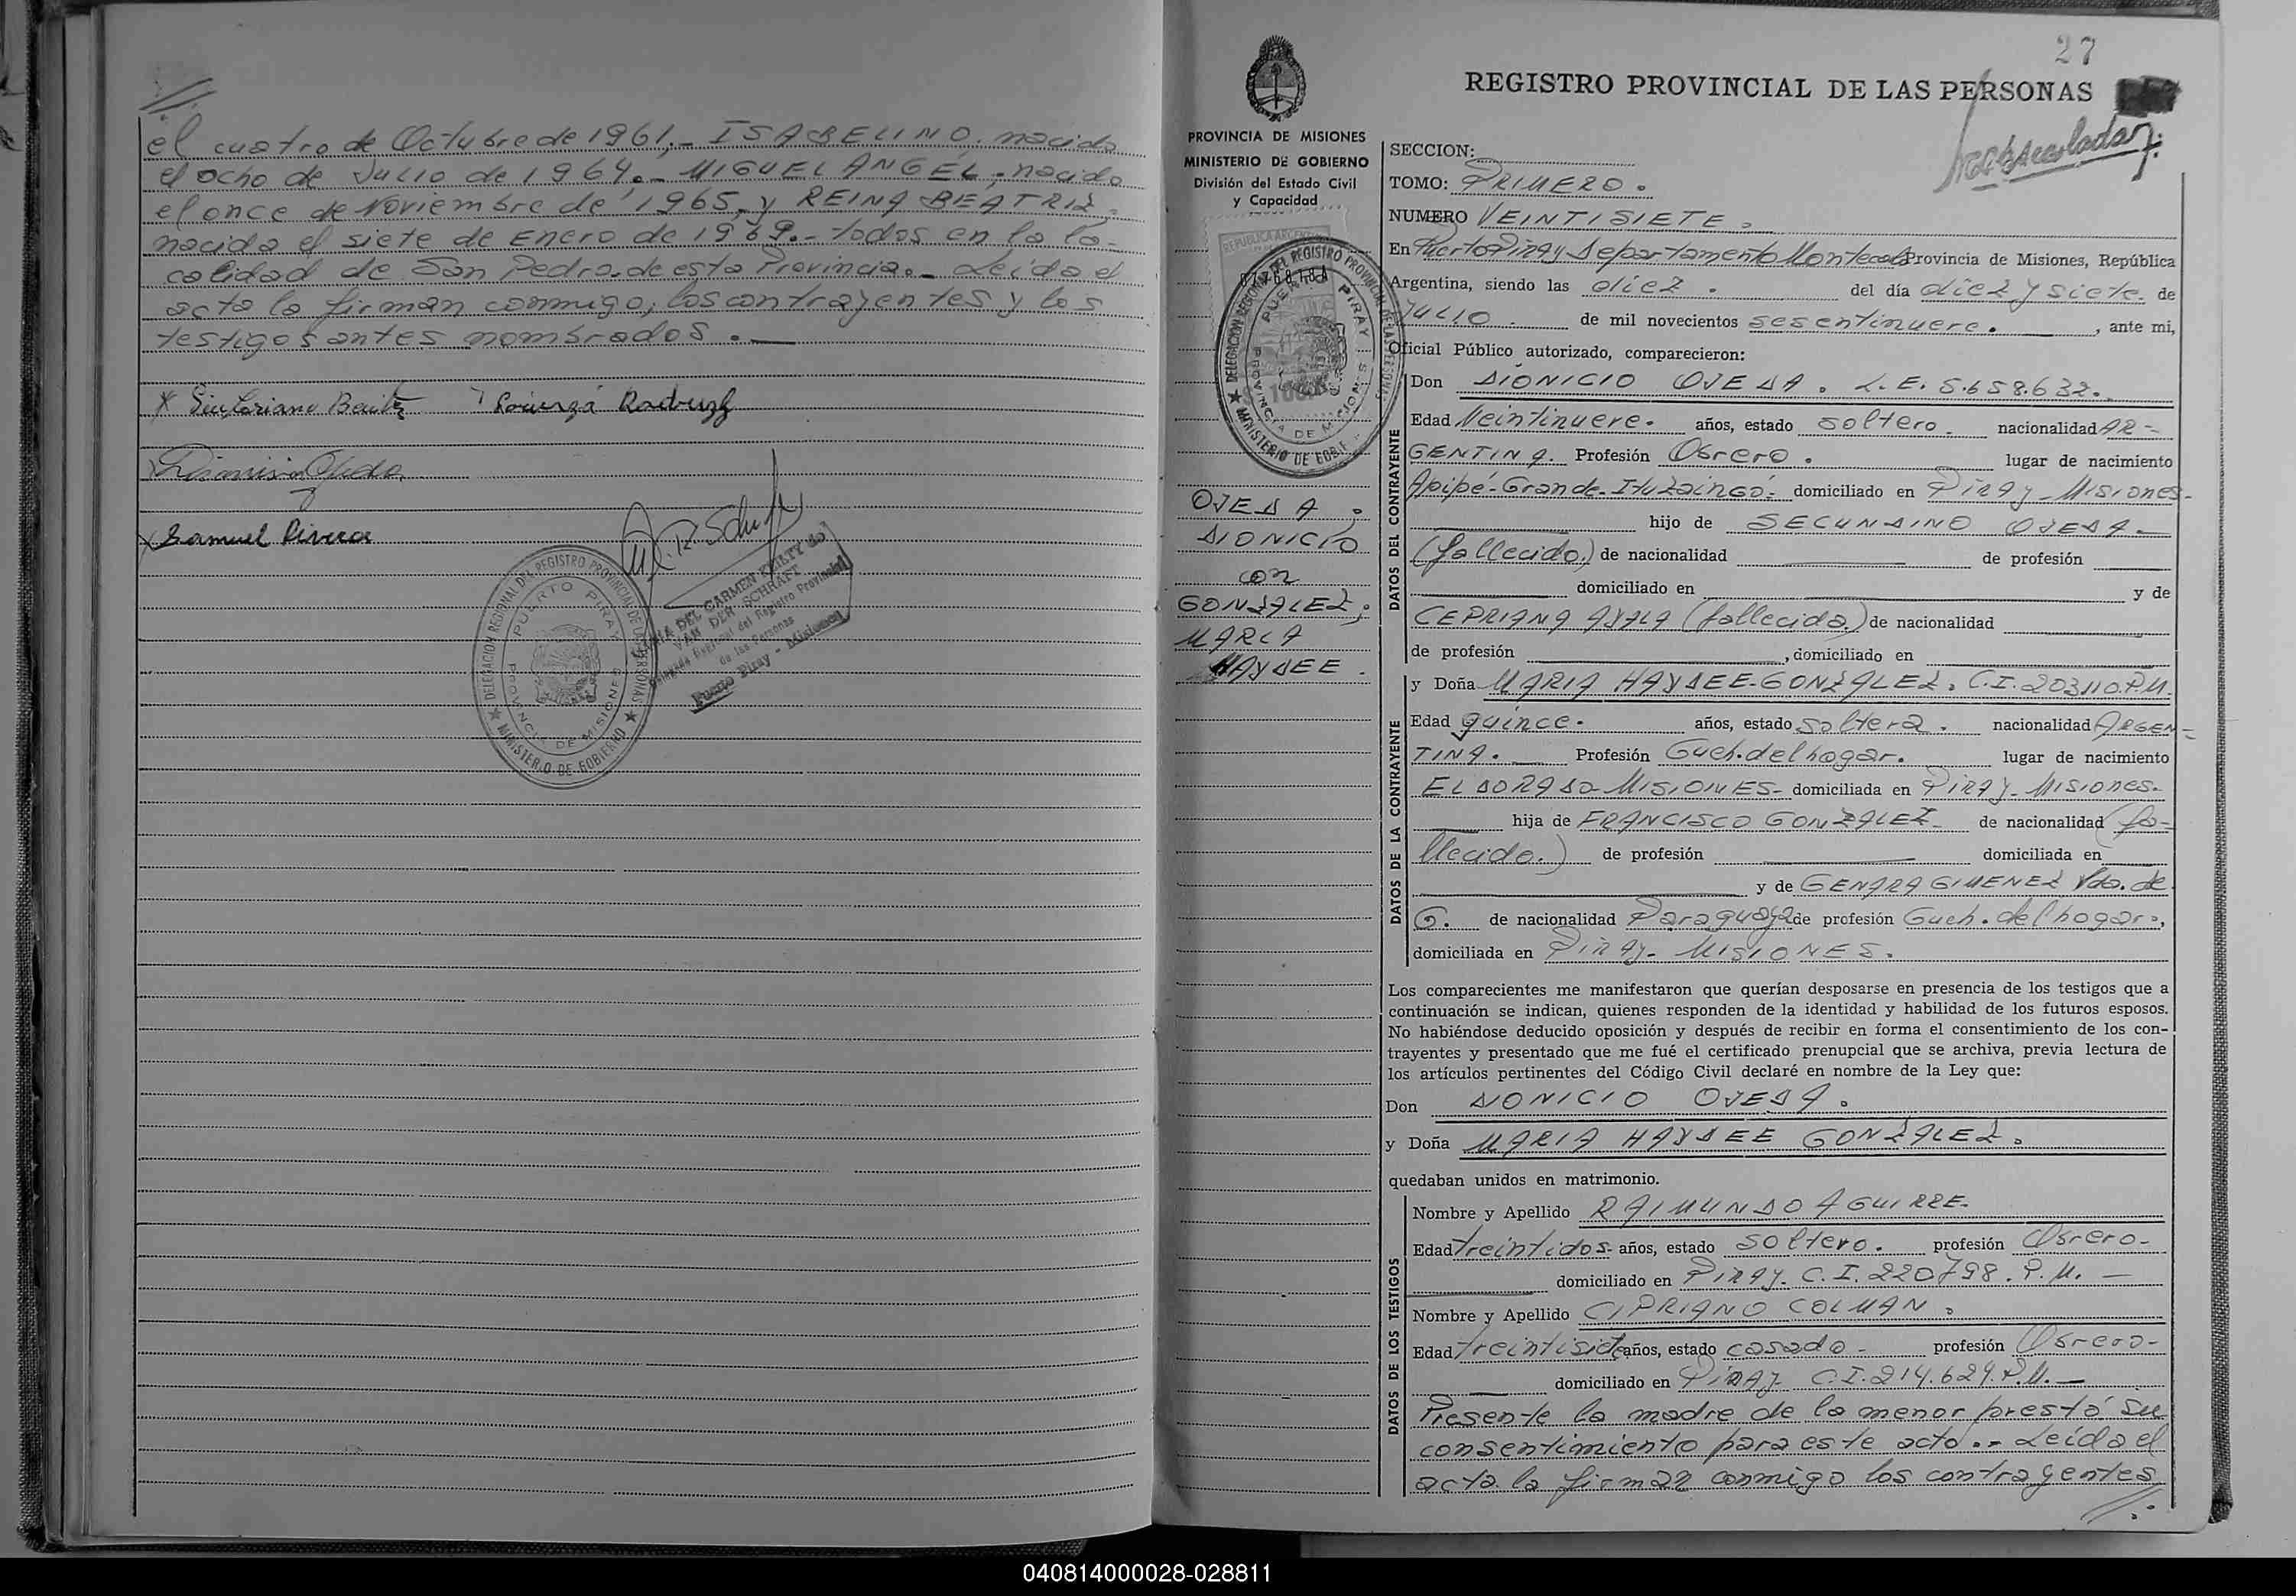 el cuatro de Octubre de 1961.- ISABELINO, nacido
el ocho de Julio de 1964.- MIGUEL ANGEL, nacido
el once de Noviembre de 1965, y REINA BEATRIZ,
nacida el siete de Enero de 1969.- todos en la lo-
calidad de San Pedro, de esta Provincia.- Leída el
acta la firman conmigo, los contrayentes y los
testigos antes nombrados.-
Samuel Rivero
MARIA DEL CARMEN de
VAN DER SCHRAFT
Delegada Regional del Registro Provincial
de las Personas
Puerto Piray - Misiones
DELEGACION REGIONAL DEL REGISTRO PROVINCIAL DE LAS PERSONAS
PUERTO PIRAY
PROVINCIA DE MISIONES
MINISTERIO DE GOBIERNO
27
REGISTRO PROVINCIAL DE LAS PERSONAS
PROVINCIA DE MISIONES
MINISTERIO DE GOBIERNO
División del Estado Civil
y Capacidad
REPUBLICA ARGENTINA
DELEGACION REGIONAL DEL REGISTRO PROVINCIAL DE LAS PERSONAS
PUERTO PIRAY
PROVINCIA DE MISIONES
MINISTERIO DE GOB
OJEDA,
DIONICIO
con
GONZALEZ,
MARIA
HAYDEE.
SECCION:
TOMO: PRIMERO.
NUMERO VEINTISIETE.
En Puerto Piray Departamento Montecarlo Provincia de Misiones, República
Argentina, siendo las diez. del día diez y siete. de
JULIO. de mil novecientos sesentinueve. , ante mi,
Oficial Público autorizado, comparecieron:
DATOS DEL CONTRAYENTE
Don DIONICIO OJEDA. L.E. 5.658.632.
Edad Veintinueve. años, estado soltero. nacionalidad AR-
GENTINA. Profesión Obrero. lugar de nacimiento
Apipé-Grande-Ituzaingó- domiciliado en Piray-Misiones-
hijo de SECUNDINO OJEDA-
(fallecido.) de nacionalidad de profesión
domiciliado en y de
CEPRIANA AYALA (fallecida.) de nacionalidad
de profesión , domiciliado en
DATOS DE LA CONTRAYENTE
y Doña MARIA HAYDEE-GONZALEZ. C.I. 203110.P.M.
Edad quince. años, estado soltera. nacionalidad ARGEN-
TINA. Profesión Queh.del hogar. lugar de nacimiento
ELDORADO-MISIONES- domiciliada en Piray-Misiones.
hija de FRANCISCO GONZALEZ- de nacionalidad (fa-
llecido.) de profesión domiciliada en
y de GENARA GIMENEZ Vda. de
G. de nacionalidad Paraguaya de profesión Queh. del hogar.,
domiciliada en PIRAY- MISIONES.
Los comparecientes me manifestaron que querían desposarse en presencia de los testigos que a
continuación se indican, quienes responden de la identidad y habilidad de los futuros esposos.
No habiéndose deducido oposición y después de recibir en forma el consentimiento de los con-
trayentes y presentado que me fué el certificado prenupcial que se archiva, previa lectura de
los artículos pertinentes del Código Civil declaré en nombre de la Ley que:
Don DIONICIO OJEDA.
y Doña MARIA HAYDEE GONZALEZ.
quedaban unidos en matrimonio.
DATOS DE LOS TESTIGOS
Nombre y Apellido RAIMUNDO AGUIRRE-
Edad treintidos- años, estado soltero. profesión Obrero-
domiciliado en PIRAY. C.I. 220798. P.M.
Nombre y Apellido CIPRIANO COLMAN.
Edad treintisiete años, estado casado- profesión Obrero-
domiciliado en PIRAY C.I. 214.629.P.M.
Presente la madre de la menor prestó su
consentimiento para este acto.- Leída el
acta la firman conmigo los contrayentes
040814000028-028811